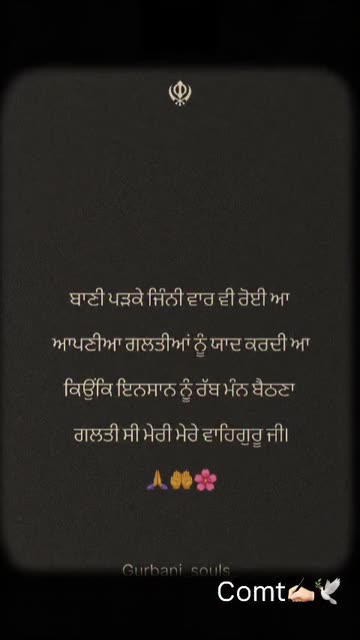 ਬਾਣੀ ਪੜਕੇ ਜਿੰਨੀ ਵਾਰ ਵੀ ਰੋਈ ਆ
ਆਪਣੀਆ ਗਲਤੀਆਂ ਨੂੰ ਯਾਦ ਕਰਦੀ ਆ
ਕਿਉਂਕਿ ਇਨਸਾਨ ਨੂੰ ਰੱਬ ਮੰਨ ਬੈਠਣਾ
ਗਲਤੀ ਸੀ ਮੇਰੀ ਮੇਰੇ ਵਾਹਿਗੁਰੂ ਜੀ।
🙏🤲🌸
Gurbani_souls
Comt✍🏻🕊️